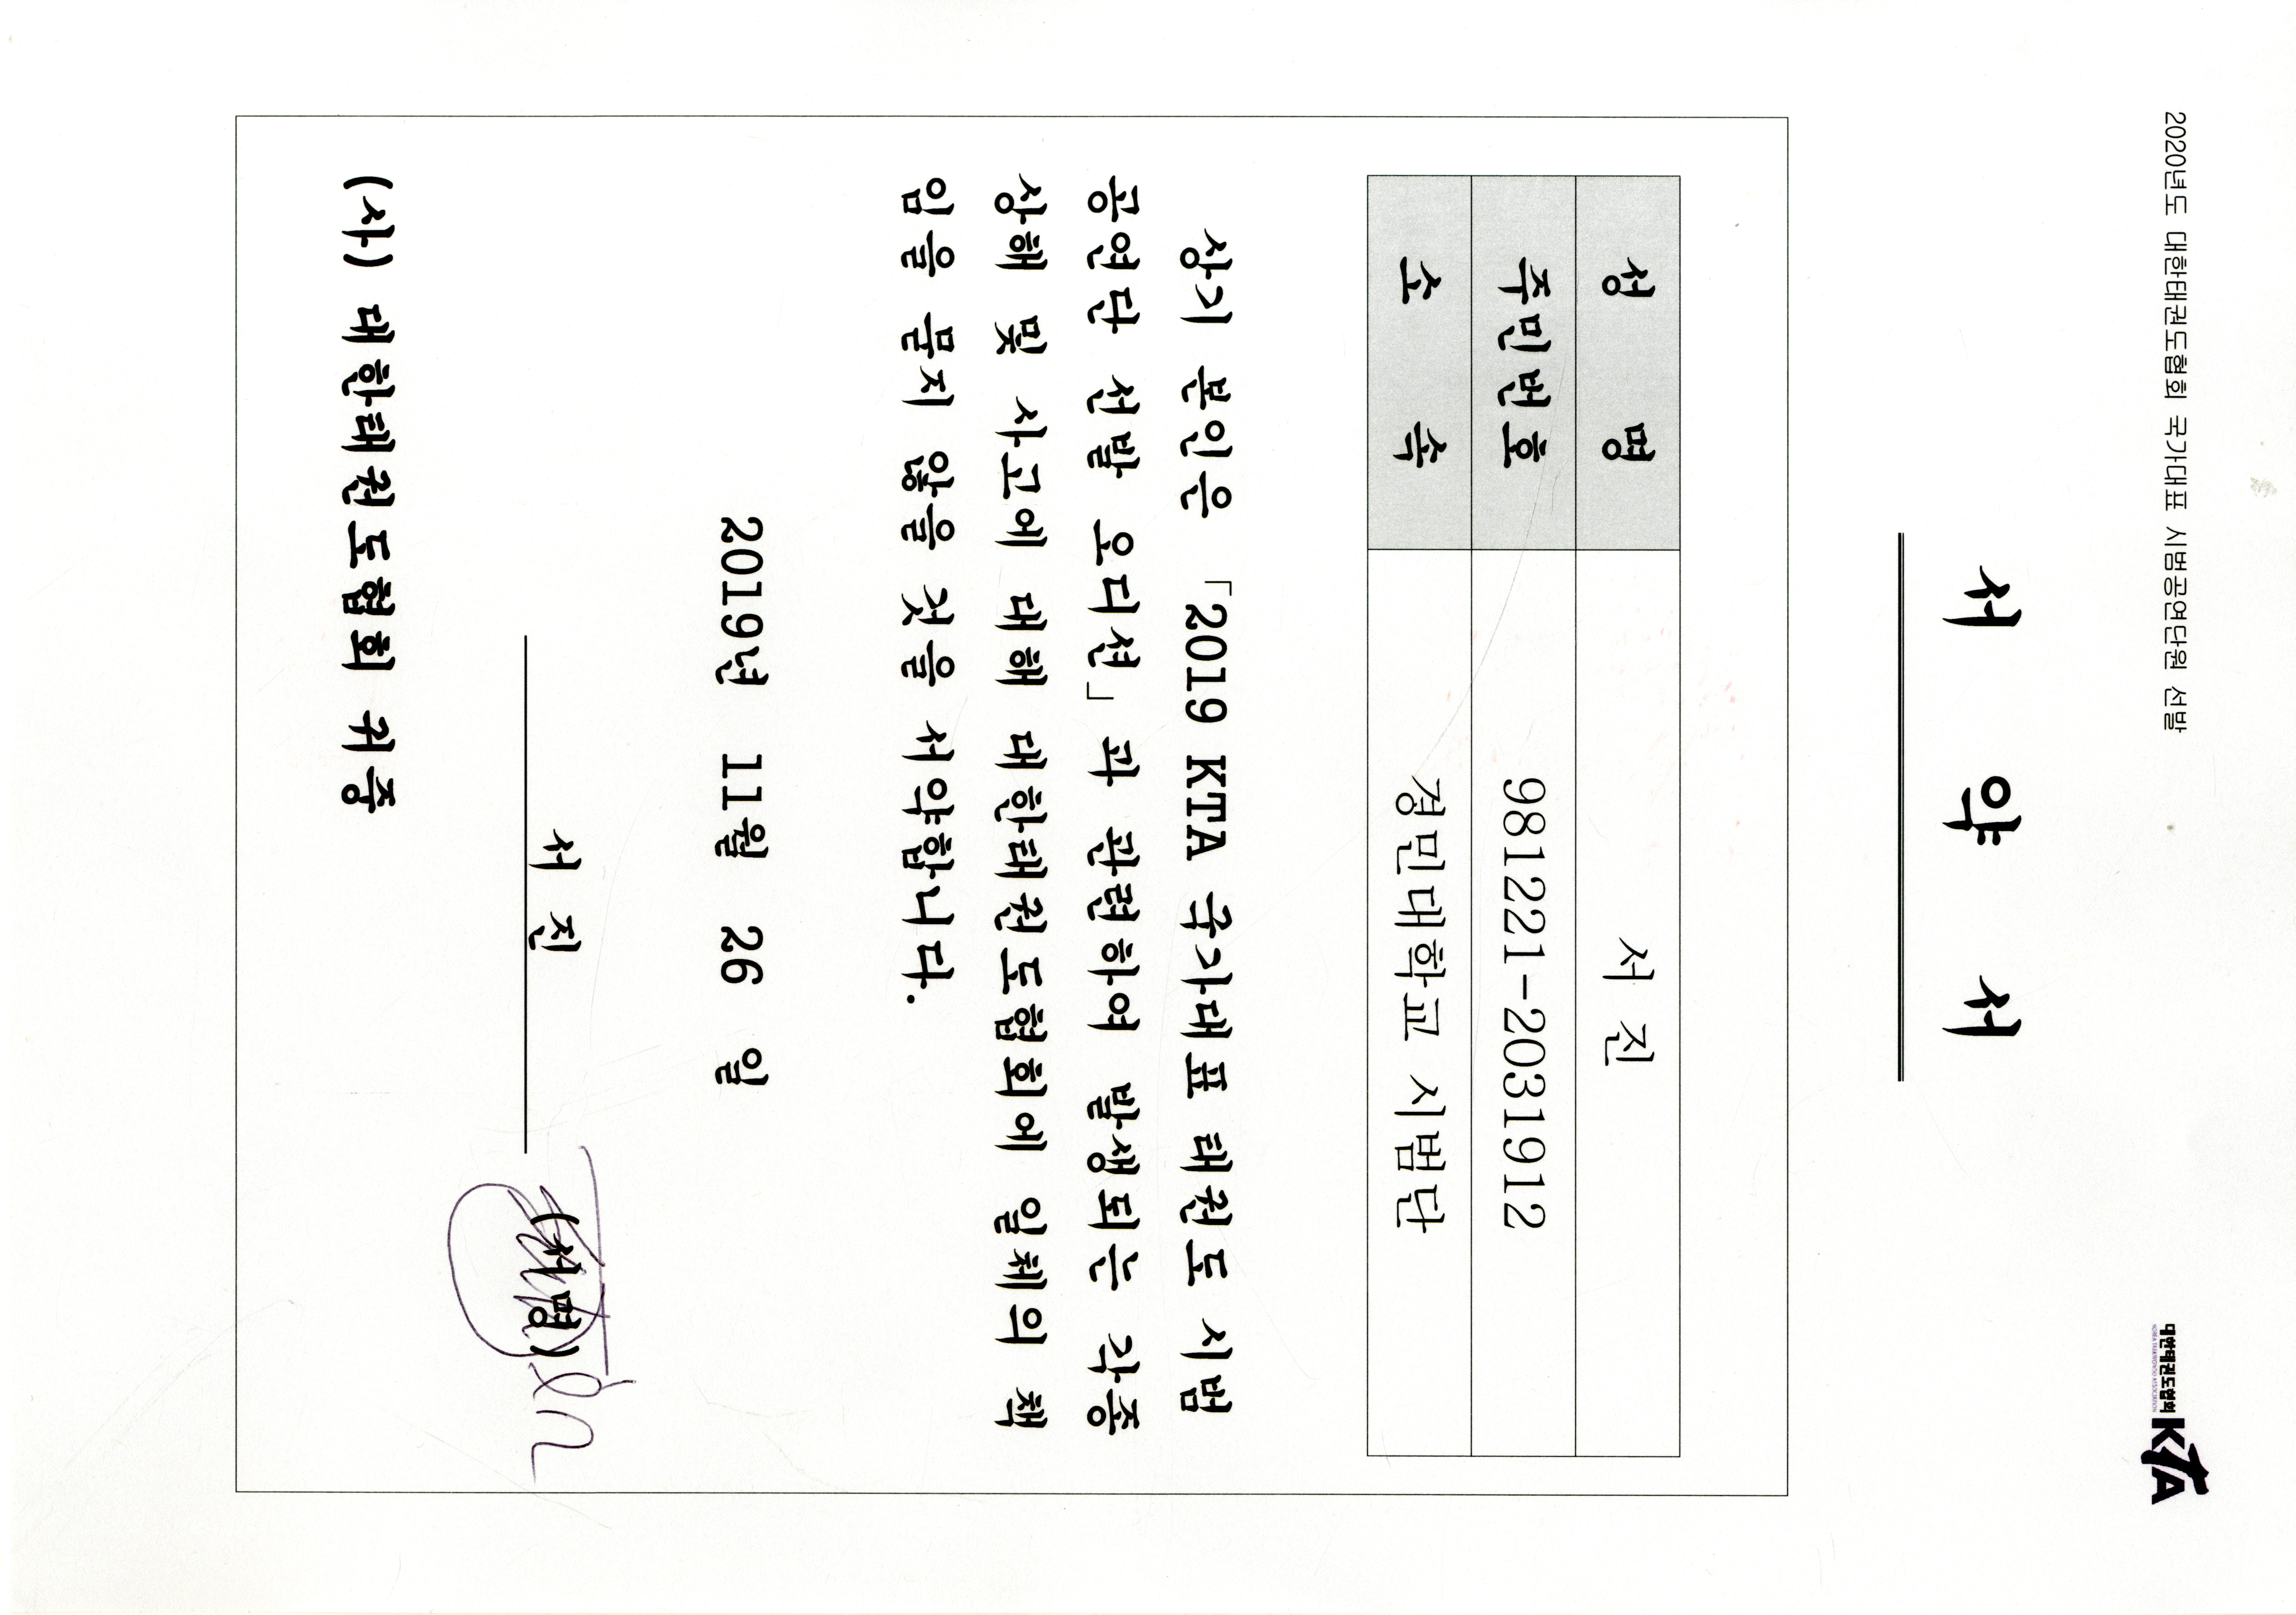 2020년도 대한태권도협회 국가대표 시범공연단원 선발
대한태권도협회
KOREA TAEKWONDO ASSOCIATION
KTA
서 약 서
성 명 서 진
주민번호 981221-2031912
소 속 경민대학교 시범단
상기 본인은 「2019 KTA 국가대표 태권도 시범
공연단 선발 오디션」과 관련하여 발생되는 각종
상해 및 사고에 대해 대한태권도협회에 일체의 책
임을 묻지 않을 것을 서약합니다.
2019년 11월 26 일
서 진 (서명)
(사) 대한태권도협회 귀중